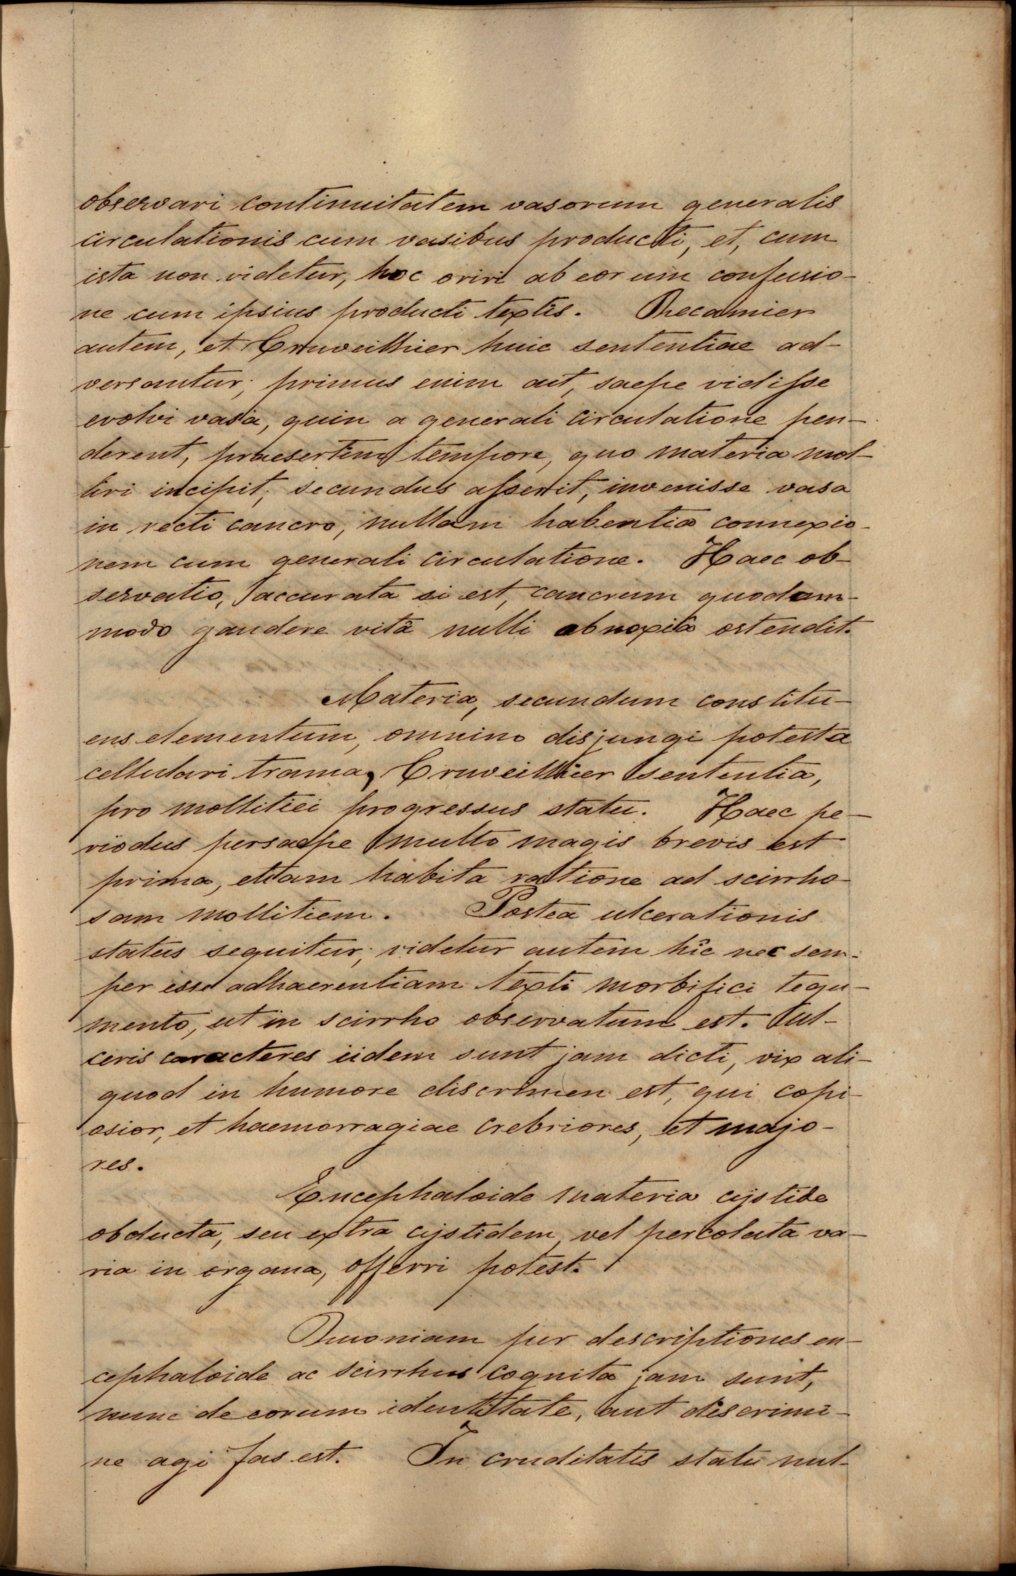 observari continuitatem vasorum generalis
circulationis cum vasibus producti, et, cum
ista non videtur, hoc oriri ab eorum confusio-
ne cum ipsius producti textis. Recamier
autem, et Cruveilhier huic sententiae ad-
versantur; primus enim ait, saepe vidisse
evolvi vasa, quin a generali circulatione pen-
derent, praesertim tempore, quo materia mol-
liri incipit; secundus asserit, invenisse vasa
in recti cancro, nullam habentia connexio-
nem cum generali circulatione. Haec ob-
servatio, accurata si est, cancrum quodam-
modo gaudere vitâ nulli obnoxiâ ostendit.
Materia, secundum constitu-
ens elementum, omnino disjungi potest a
cellulari trama, Cruveilhier sententia,
pro mollitiei progressus statu. Haec pe-
riodus persaepe multo magis brevis est
prima, etiam habita ratione ad scirrho-
sam mollitiem. Postea ulcerationis
status sequitur; videtur autem hîc nec sem-
per esse adhaerentiam texti morbifici tegu-
mento, ut in scirrho observatum est. Ul-
ceris caracteres iidem sunt jam dicti, vix ali-
quod in humore discrimen est, qui copi-
osior, et haemorragiae crebriores, et majo-
res.
Encephaloide materia cystide
obducta, seu extra cystidem, vel percolata va-
ria in organa, offerri potest.
Quoniam per descriptiones en-
cephaloide ac scirrhus cognita jam sunt,
nunc de eorum identitate, aut discrimi-
ne agi fas est. In cruditatis statu nul-